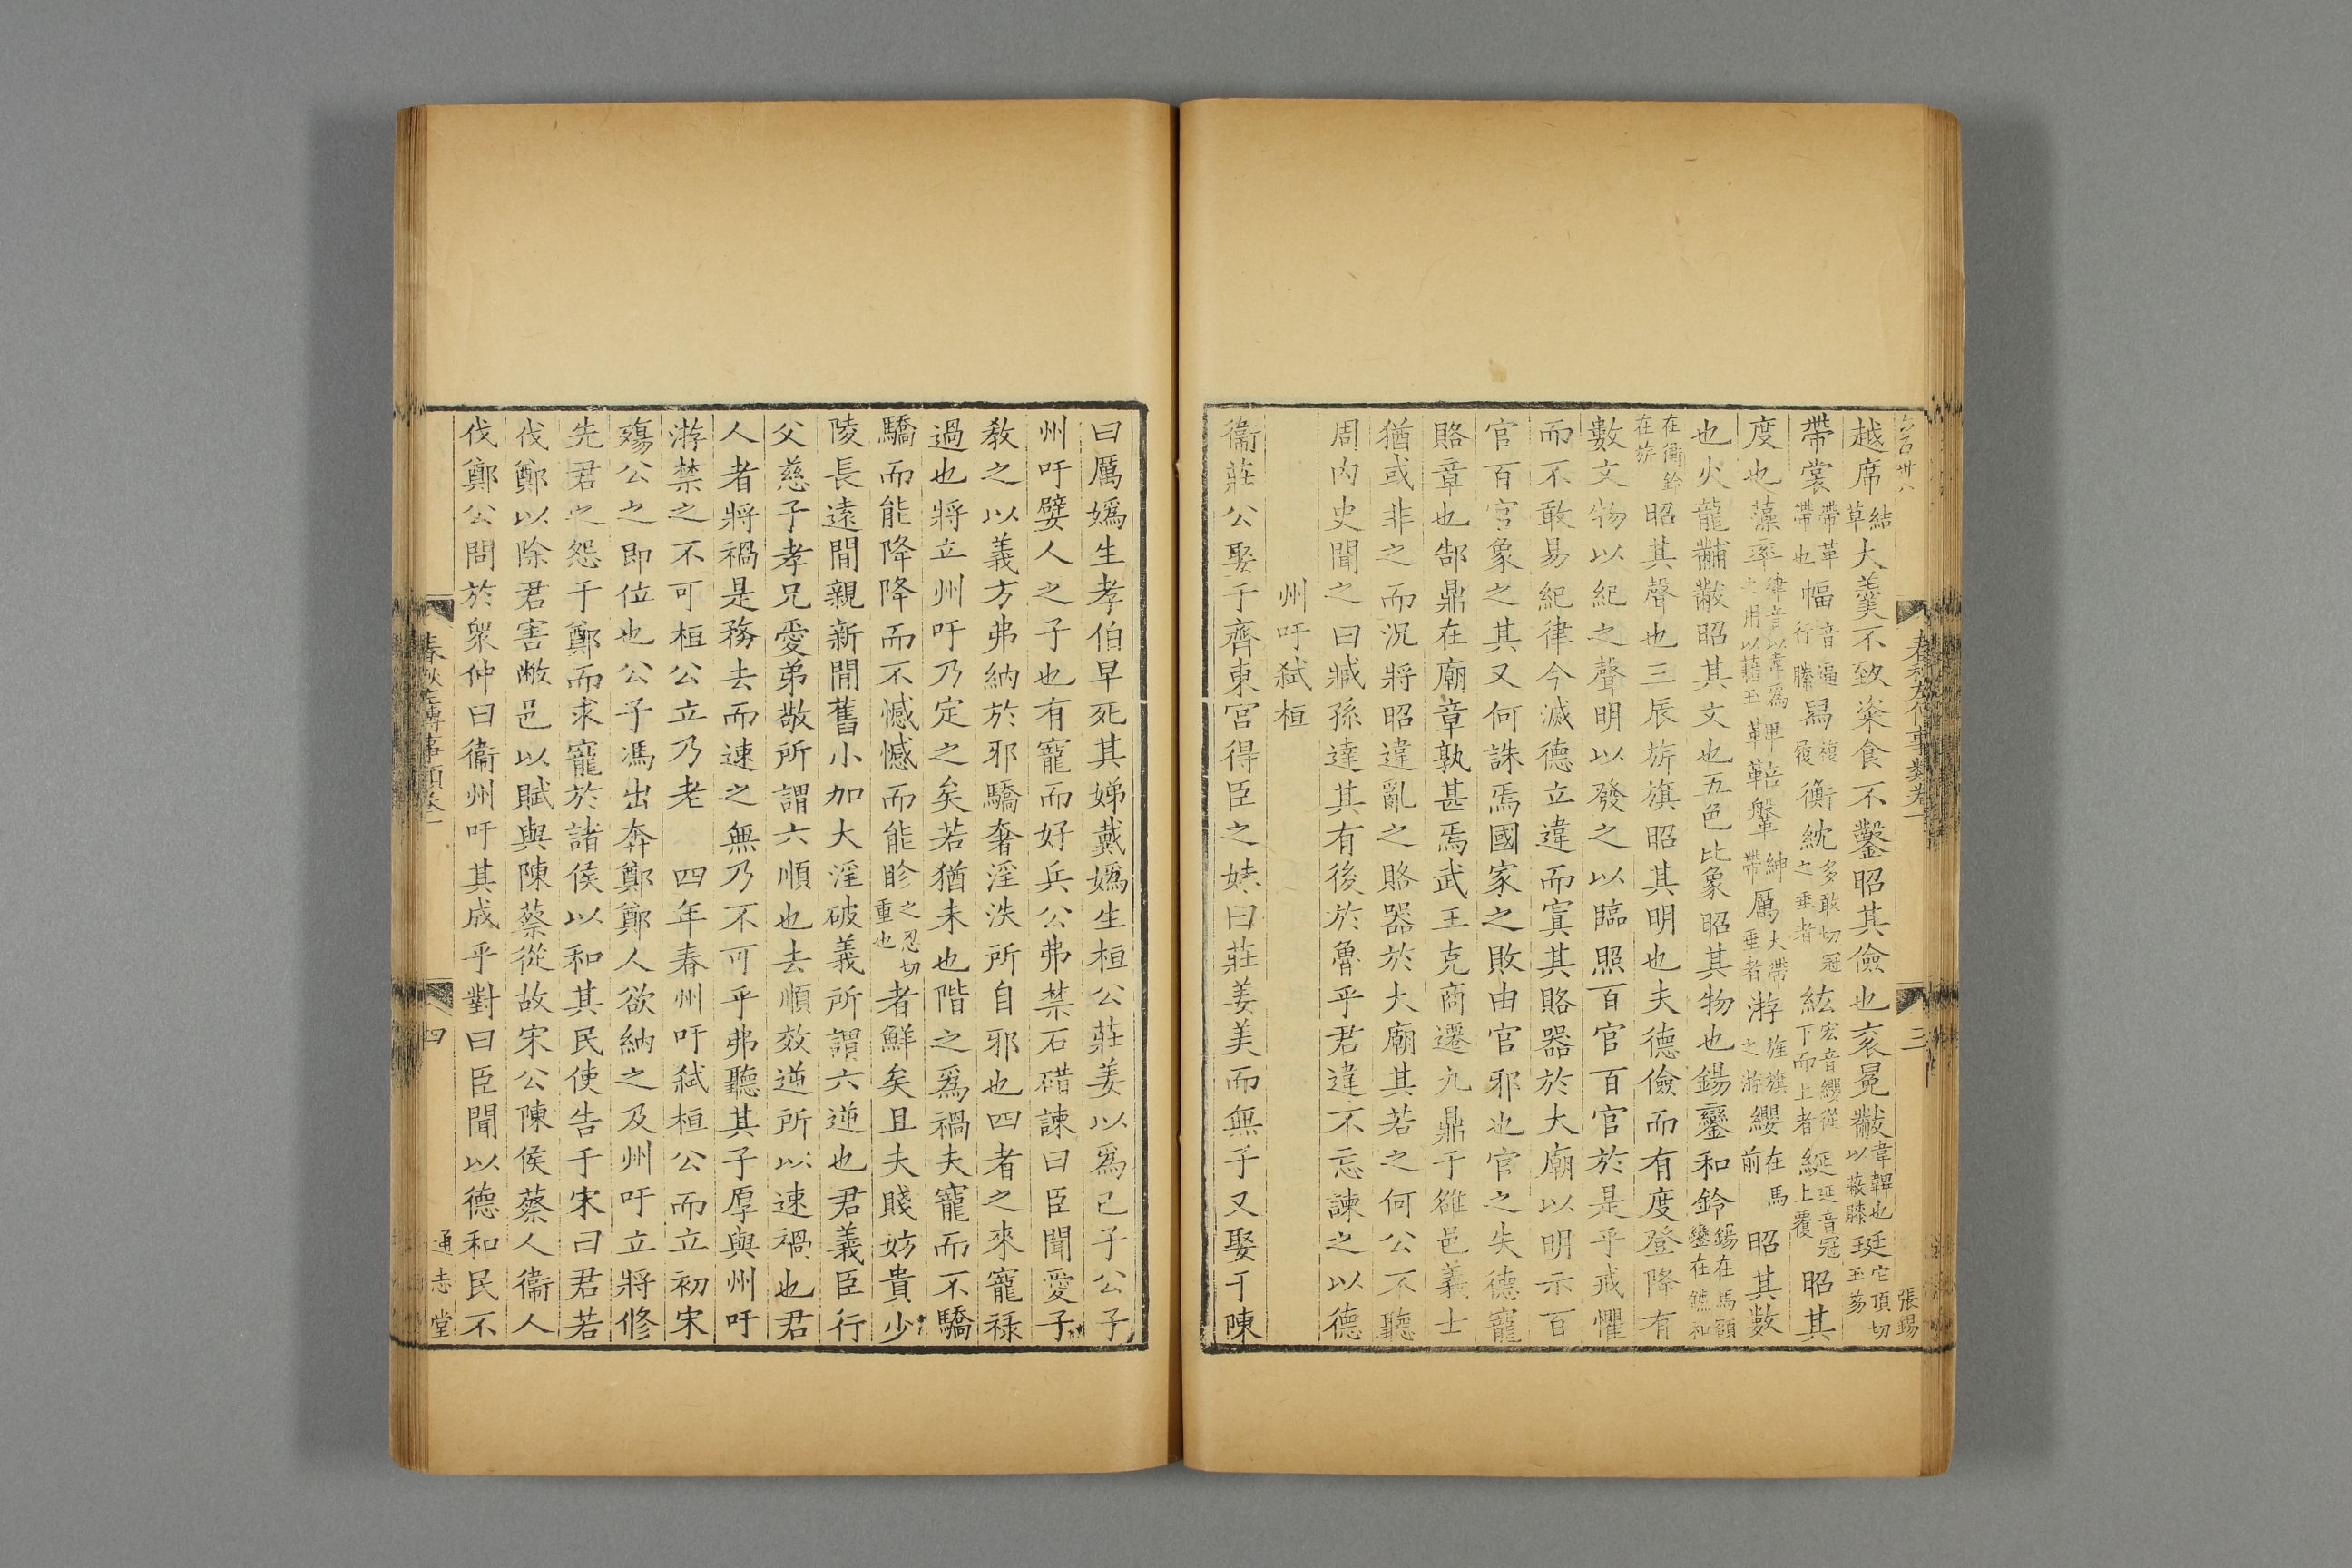 越席結草大羹不致粢食不鑿昭其儉也衮冕黻韋韠也以蔽膝珽它頂切玉笏
帶裳帶革帶也幅音逼行縢舄複履衡紞多敢切冠之垂者紘宏音纓從下而上者綖延音冠上覆昭其
度也藻率律音以韋爲之用以藉玉鞞鞛鞶紳帶厲大帶垂者游旌旗之游纓在馬前昭其數
也火龍黼黻昭其文也五色比象昭其物也鍚鸞和鈴鍚在馬額鸞在鑣和
在衡鈴在旂昭其聲也三辰旂旗昭其明也夫德儉而有度登降有
數文物以紀之聲明以發之以臨照百官百官於是乎戒懼
而不敢易紀律今滅德立違而寘其賂器於大廟以明示百
官百官象之其又何誅焉國家之敗由官邪也官之失德寵
賂章也郜鼎在廟章孰甚焉武王克商遷九鼎于雒邑義士
猶或非之而況將昭違亂之賂器於大廟其若之何公不聽
周內史聞之曰臧孫達其有後於魯乎君違不忘諫之以德
州吁弑桓
衞莊公娶于齊東宮得臣之妹曰莊姜美而無子又娶于陳
曰厲嬀生孝伯早死其娣戴嬀生桓公莊姜以爲己子公子
州吁嬖人之子也有寵而好兵公弗禁石碏諫曰臣聞愛子
教之以義方弗納於邪驕奢淫泆所自邪也四者之來寵祿
過也將立州吁乃定之矣若猶未也階之爲禍夫寵而不驕
驕而能降降而不憾憾而能眕之忍切重也者鮮矣且夫賤妨貴少
陵長遠間親新間舊小加大淫破義所謂六逆也君義臣行
父慈子孝兄愛弟敬所謂六順也去順效逆所以速禍也君
人者將禍是務去而速之無乃不可乎弗聽其子厚與州吁
游禁之不可桓公立乃老　四年春州吁弑桓公而立初宋
殤公之即位也公子馮出奔鄭鄭人欲納之及州吁立將修
先君之怨于鄭而求寵於諸侯以和其民使告于宋曰君若
伐鄭以除君害敝邑以賦與陳蔡從故宋公陳侯蔡人衞人
伐鄭公問於衆仲曰衞州吁其成乎對曰臣聞以德和民不
春秋左傳事類卷一
四
通志堂